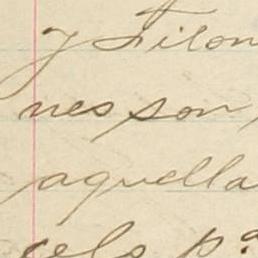 y Filon
nes son,
aquella
cels p.a